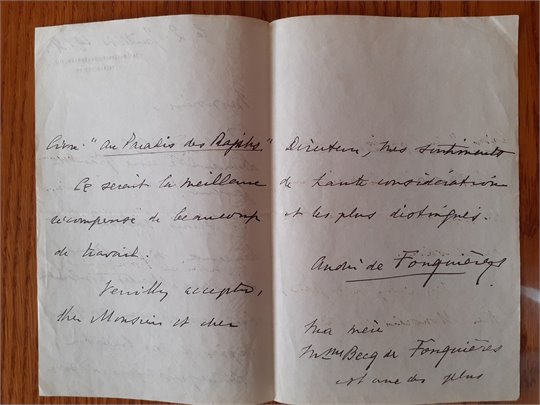 livre "Au Paradis des Rajahs"
Ce serait la meilleure
récompense de beaucoup
de travail.
Veuillez accepter,
cher Monsieur et cher
Directeur, mes sentiments
de haute considération
et les plus distingués.
André de Fouquières
Ma mère
Mme Becq de Fouquières
est une des plus